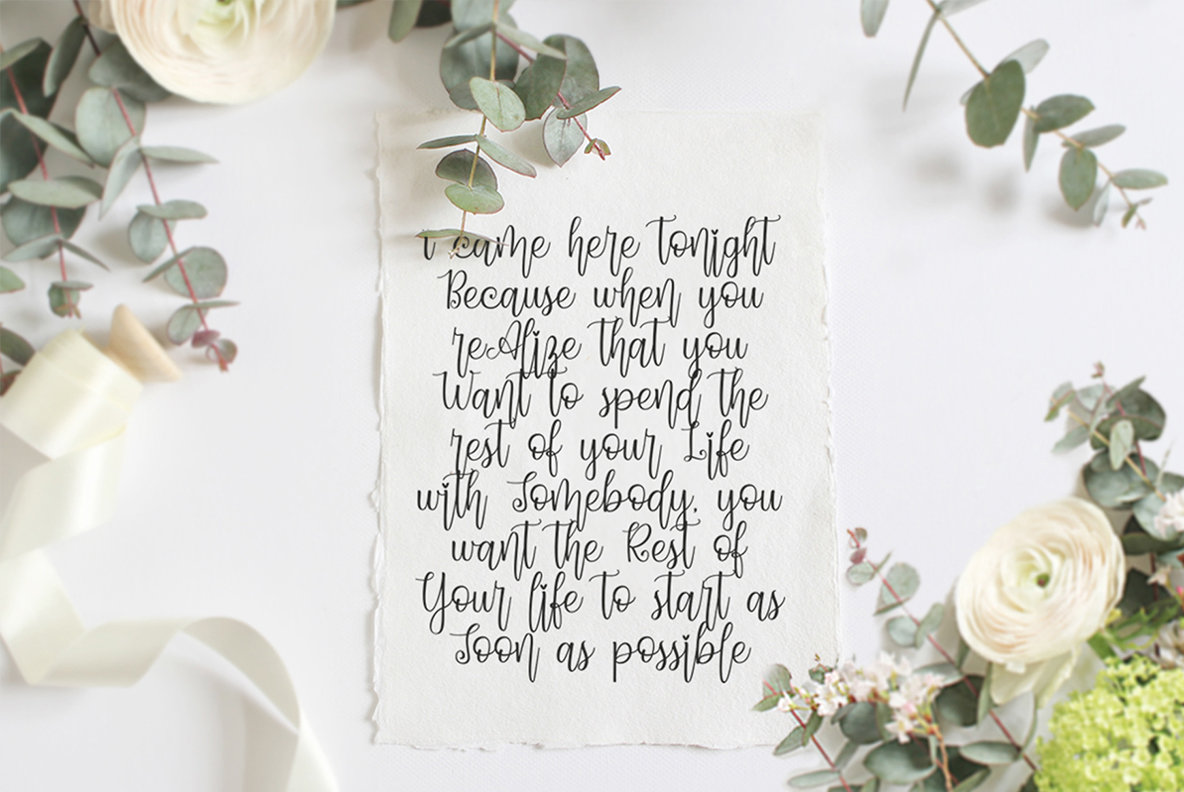 i came here tonight
Because when you
reAlize that you
Want to spend the
rest of your Life
with Somebody, you
want the Rest of
Your life to start as
Soon as possible